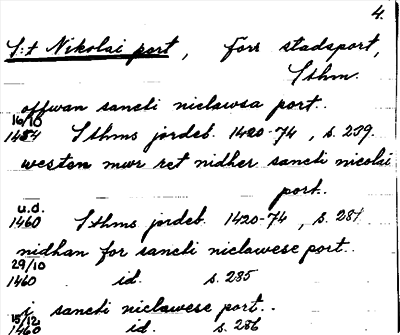 4.
S:t Nikolai port, Forr stadsport,
Sthm.
offwan sancti niclawsa port..
16/10
1454 Sthms jordeb. 1420-74, s. 239.
westen mwr ret nidher sancti nicolai
port..
u.d.
1460 Sthms jordeb. 1420-74, s. 281
nidhan for sancti niclawese port..
29/10
1460 id. s. 285
i sancti niclawese port..
15/12
1460 id. s. 286